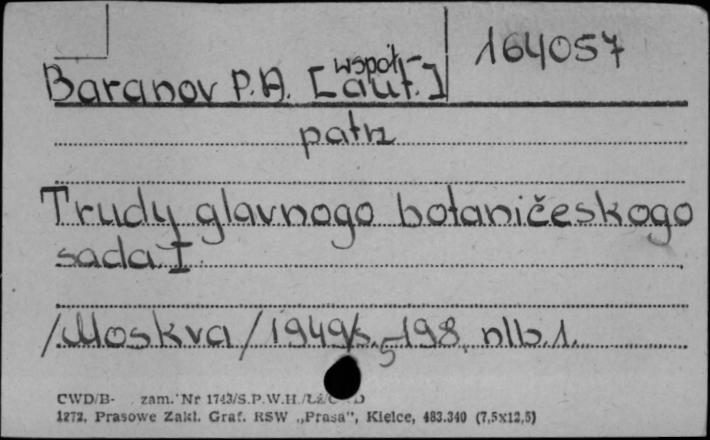 164057
Baranov P.A. [współ-aut.]
patrz
Trudy glavnogo botaničeskogo
sada I
/Moskva/1949/s. 5 198, nlb. 1.
CWD/B- zam. Nr 1743/S.P.W.H./Łź/
1272, Prasowe Zakł. Graf. RSW „Prasa”, Kielce, 483.340 (7,5x12,5)